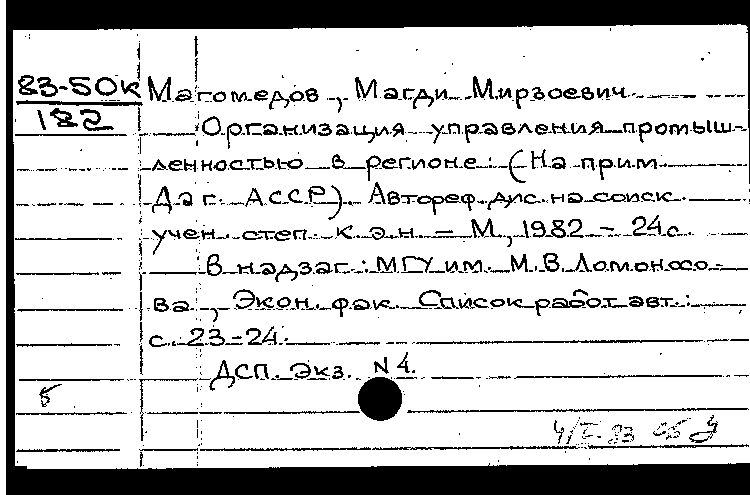 83-50к Магомедов, Магди Мирзоевич.
182
Организация управления промыш-
ленностью в регионе: (На прим.
Даг. АССР). Автореф. дис. на соиск.
учен. степ. к.э.н. – М., 1982 – 24с.
В надзаг.: МГУ им. М.В. Ломоносо-
ва, Экон. фак. Список работ авт.:
с. 23-24.
ДСП. Экз. N 4.